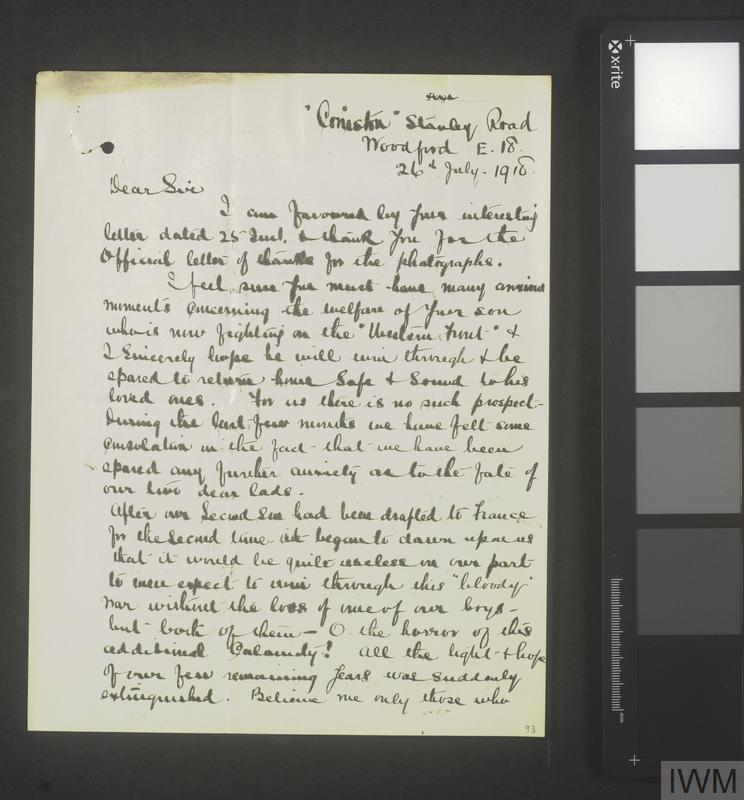 "Coniston" Stanley Road
Woodford E. 18.
26th July. 1918.
Dear Sir
I am favoured by your interesting
letter dated 25 Inst. & thank you for the
Official letter of thanks for the photographs.
I feel sure you must have many anxious
moments concerning the welfare of your son
who is now fighting on the "Western Front" &
I sincerely hope he will win through & be
spared to return home Safe & Sound to his
loved ones. For us there is no such prospect-
During the last few months we have felt some
consolation in the fact that we have been
spared any further anxiety as to the fate of
our two dear lads.
After our Second Son had been drafted to France
for the second time it began to dawn upon us
that it would be quite useless on our part
to even expect to win through this "bloody"
war without the loss of one of our boys-
but both of them - O. the horror of this
additional Calamity! All the light & hope
of our few remaining years was suddenly
extinguished. Believe me only those who
93
x-rite
mm
IWM